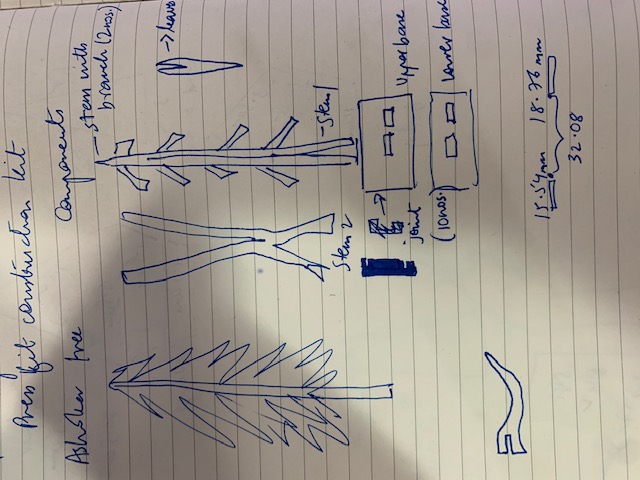 Press fit construction kit
Ashoka tree
Components
stem with
branch (2nos.)
→ leave
stem 1
Stem 2
joint
(10nos.)
upper base
Lower base
15.54mm
18.76 mm
32.08